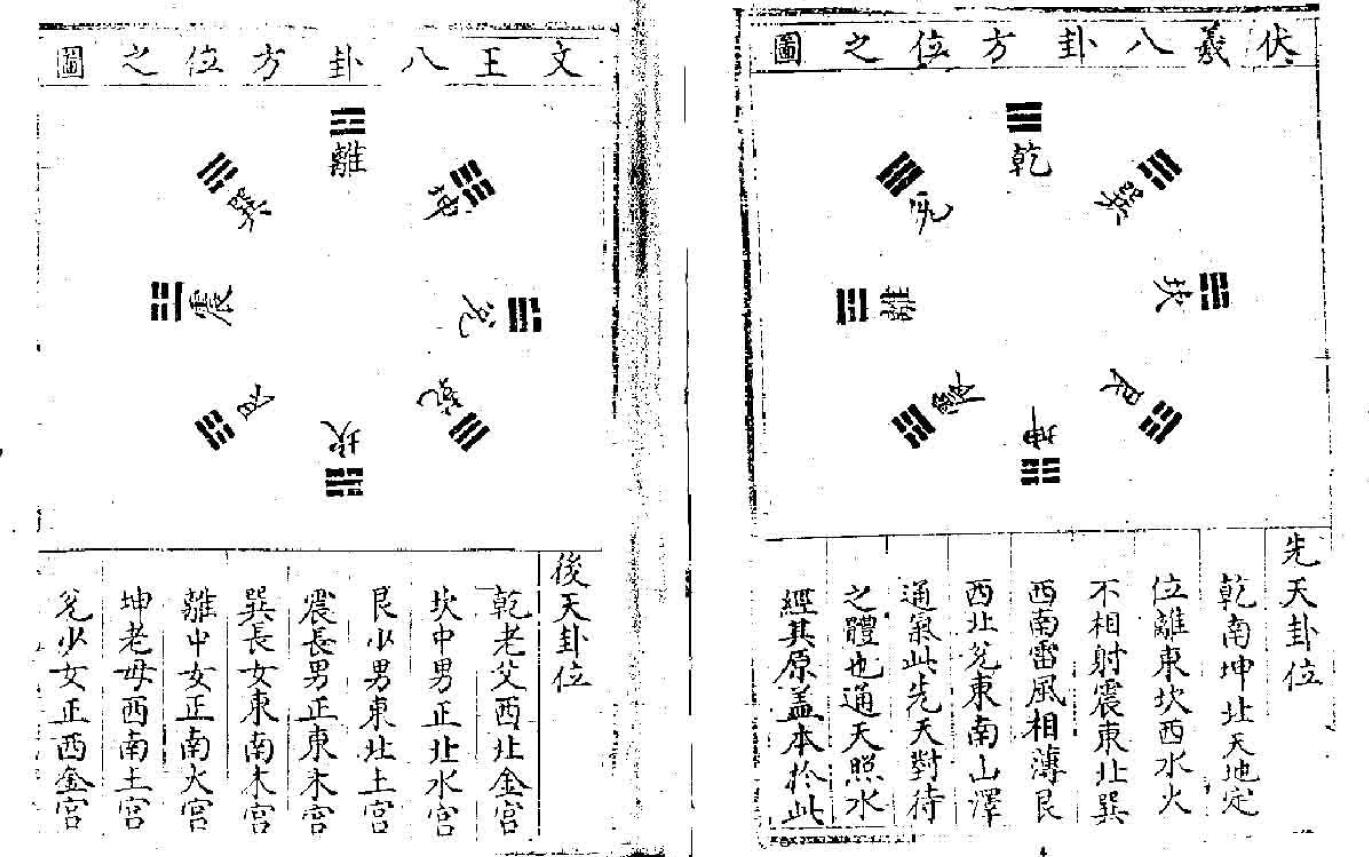 伏羲八卦方位之圖
乾
兌
巽
離
坎
震
艮
坤
先天卦位
乾南坤北天地定
位離東坎西水火
不相射震東北巽
西南雷風相薄艮
西北兌東南山澤
通氣此先天對待
之體也通天照水
經其原盖本於此
文王八卦方位之圖
離
巽
坤
震
兌
艮
乾
坎
後天卦位
乾老父西北金宮
坎中男正北水宮
艮少男東北土宮
震長男正東木宮
巽長女東南木宮
離中女正南火宮
坤老母西南土宮
兌少女正西金宮